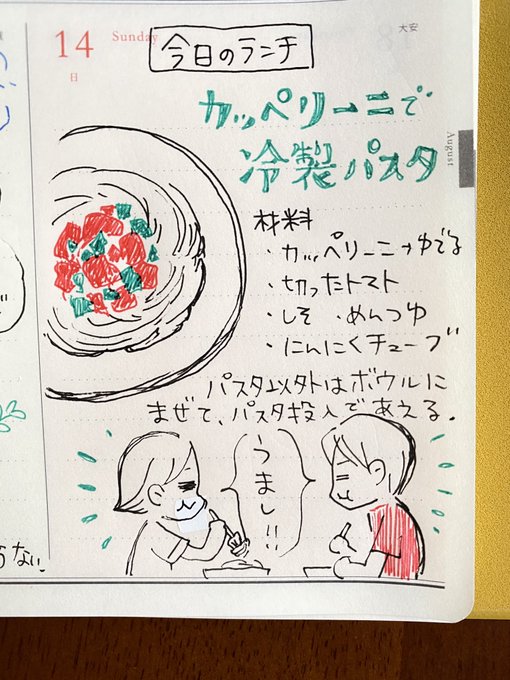 14
Sunday
大安
日
今日のランチ
カッペリーニで
冷製パスタ
August
材料
・カッペリーニ→ゆでる
・切ったトマト
・しそ ・めんつゆ
・にんにくチューブ
パスタ以外はボウルに
まぜて、パスタ投入であえる。
うまし!!
らない。